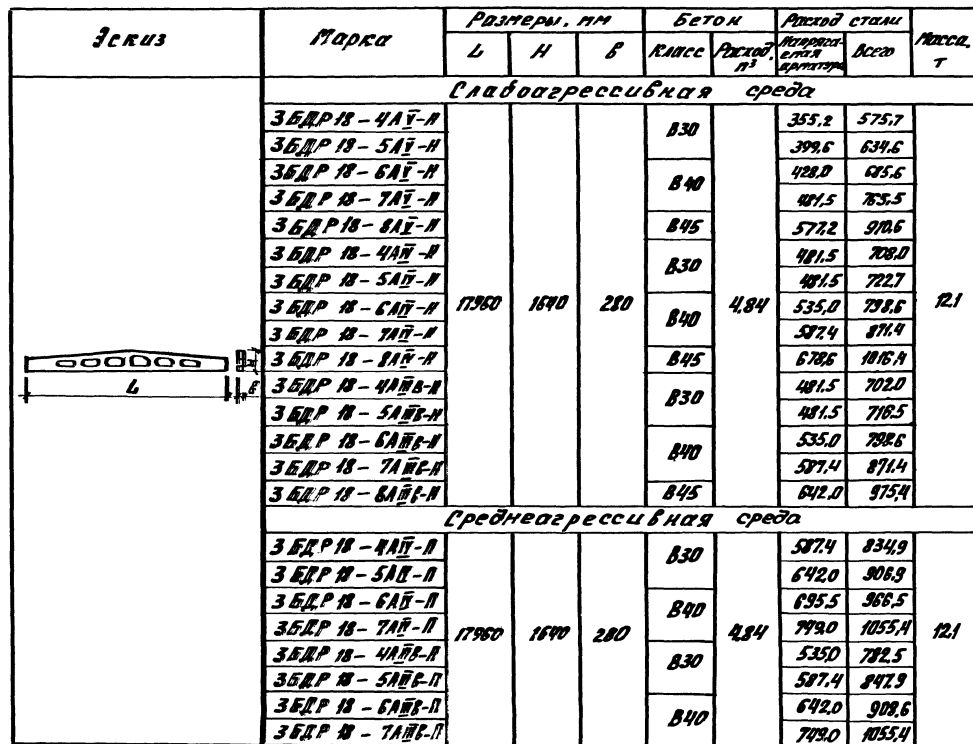 Эскиз Марка Размеры, мм Бетон Расход стали Масса, т
L H B Класс Расход, м³ Напрягаемая арматура Всего
Слабоагрессивная среда
3БДР 18-4АV-Н В30 355,2 575,7
3БДР 18-5АV-Н 399,6 634,6
3БДР 18-6АV-Н В40 428,0 685,6
3БДР 18-7АV-Н 481,5 765,5
3БДР 18-8АV-Н В45 577,2 910,6
3БДР 18-4АIV-Н В30 481,5 708,0
3БДР 18-5АIV-Н 481,5 722,7
3БДР 18-6АIV-Н 17960 1640 280 В40 4,84 535,0 798,6 12,1
3БДР 18-7АIV-Н 587,4 871,4
3БДР 18-8АIV-Н В45 678,6 1016,4
L B
3БДР 18-4АIIIв-Н В30 481,5 702,0
3БДР 18-5АIIIв-Н 481,5 716,5
3БДР 18-6АIIIв-Н В40 535,0 798,6
3БДР 18-7АIIIв-Н 587,4 871,4
3БДР 18-8АIIIв-Н В45 642,0 975,4
Среднеагрессивная среда
3БДР 18-4АIV-П В30 587,4 834,9
3БДР 18-5АIV-П 642,0 906,9
3БДР 18-6АIV-П В40 695,5 966,5
3БДР 18-7АIV-П 17960 1640 280 4,84 749,0 1055,4 12,1
3БДР 18-4АIIIв-П В30 535,0 782,5
3БДР 18-5АIIIв-П 587,4 847,9
3БДР 18-6АIIIв-П В40 642,0 908,6
3БДР 18-7АIIIв-П 749,0 1055,4